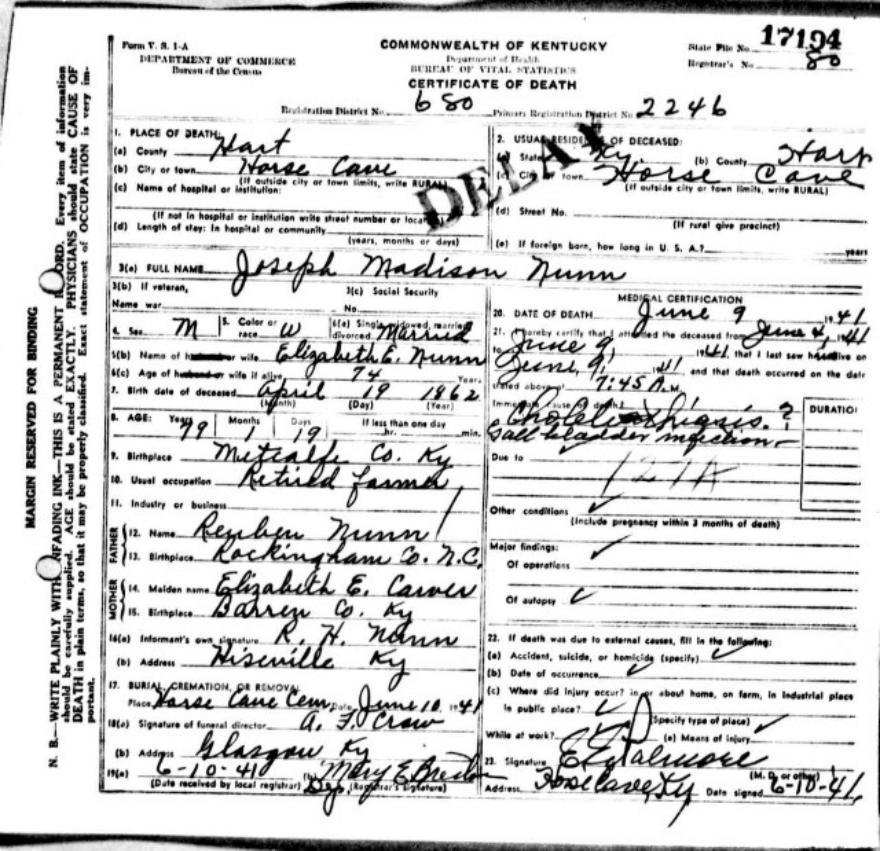 Form V. S. 1-A
DEPARTMENT OF COMMERCE
Bureau of the Census
COMMONWEALTH OF KENTUCKY
Department of Health
BUREAU OF VITAL STATISTICS
CERTIFICATE OF DEATH
State File No. 17194
Registrar's No. 80
Registration District No. 680 Primary Registration District No. 2246
DELAY
MARGIN RESERVED FOR BINDING
N. B.—WRITE PLAINLY WITH UNFADING INK—THIS IS A PERMANENT RECORD. Every item of information
should be carefully supplied. AGE should be stated EXACTLY. PHYSICIANS should state CAUSE OF
DEATH in plain terms, so that it may be properly classified. Exact statement of OCCUPATION is very im-
portant.
1. PLACE OF DEATH:
(a) County Hart
(b) City or town Horse Cave
(If outside city or town limits, write RURAL)
(c) Name of hospital or institution:
(If not in hospital or institution write street number or location)
(d) Length of stay: In hospital or community
(years, months or days)
2. USUAL RESIDENCE OF DECEASED:
(a) State Ky. (b) County Hart
(c) City or town Horse Cave
(If outside city or town limits, write RURAL)
(d) Street No.
(If rural give precinct)
(e) If foreign born, how long in U. S. A.? years
3(a) FULL NAME Joseph Madison Nunn
3(b) If veteran,
Name war
3(c) Social Security
No.
4. Sex M 5. Color or race W 6(a) Single, widowed, married, divorced Married
6(b) Name of husband or wife Elizabeth E. Nunn
6(c) Age of husband or wife if alive 74 Years
7. Birth date of deceased April 19 1862
(Month) (Day) (Year)
8. AGE: Years 79 Months 1 Days 19 If less than one day
hr. min.
9. Birthplace Metcalfe Co. Ky
10. Usual occupation Retired farmer
11. Industry or business
FATHER
12. Name Reuben Nunn
13. Birthplace Rockingham Co. N.C.
MOTHER
14. Maiden name Elizabeth E. Carver
15. Birthplace Barren Co. Ky
16(a) Informant's own signature R. H. Nunn
(b) Address Hiseville Ky
17. BURIAL, CREMATION, OR REMOVAL
Place Horse Cave Cem. Date June 10 1941
18(a) Signature of funeral director A. F. Crow
(b) Address Glasgow Ky
19(a) 6-10-41 (b) Mary E.
(Date received by local registrar) Dep. (Registrar's signature)
MEDICAL CERTIFICATION
20. DATE OF DEATH June 9 1941
21. I hereby certify that I attended the deceased from June 4, 1941
to June 9 1941 that I last saw him alive on
June 9, 1941 and that death occurred on the date
stated above at 7:45 A.M.
Immediate cause of death
Cholelithiasis. ?
Gall bladder infection
DURATION
Due to
127A
Other conditions ✓
(Include pregnancy within 3 months of death)
Major findings: ✓
Of operations
Of autopsy ✓
22. If death was due to external causes, fill in the following:
(a) Accident, suicide, or homicide (specify) ✓
(b) Date of occurrence ✓
(c) Where did injury occur? in or about home, on farm, in industrial place
in public place? ✓
(Specify type of place)
While at work? (e) Means of injury ✓
23. Signature Palmore
(M. D. or other)
Address Horse Cave, Ky Date signed 6-10-41